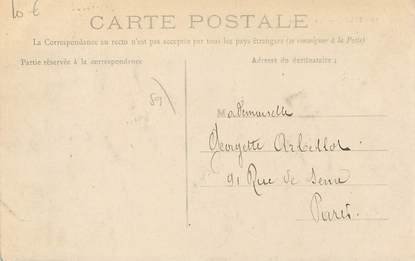 10 €
CARTE POSTALE
La Correspondance au recto n'est pas acceptée par tous les pays étrangers (se renseigner à la Poste)
Partie réservée à la correspondance
Adresse du destinataire ;
89
Mademoiselle
Georgette Arbellot
91 Rue de Seine
Paris.